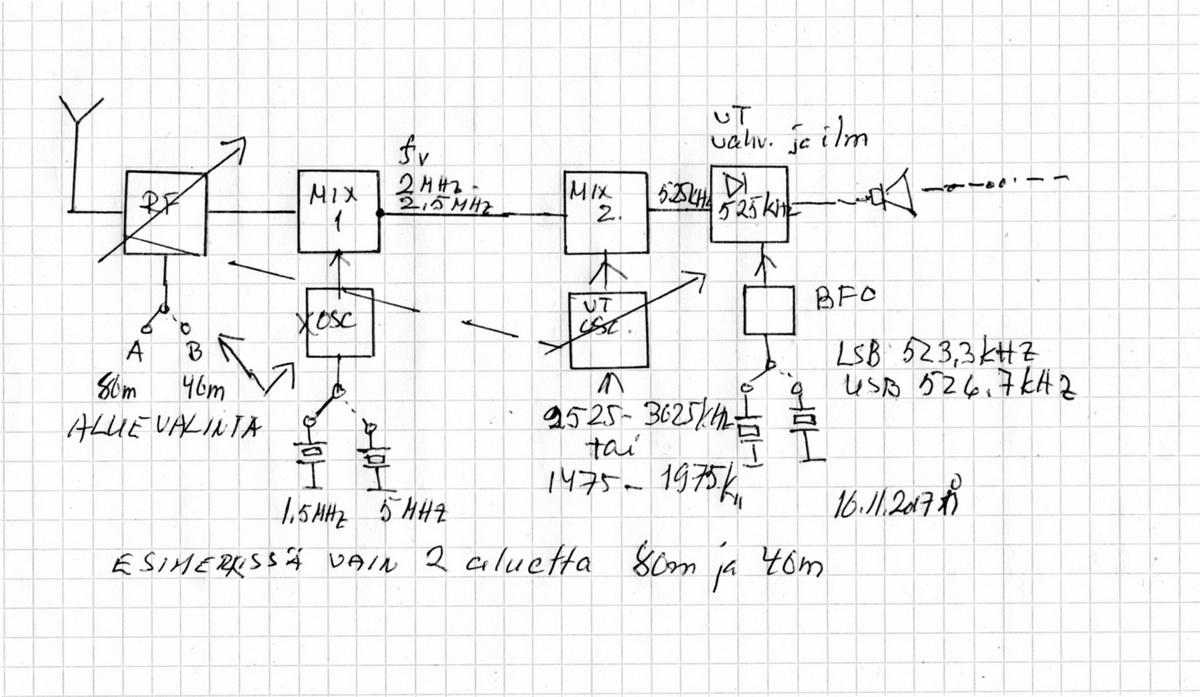 UT
vahv. ja ilm
fv
2 MHz -
2,5 MHz
RF
MIX
1
MIX
2.
525kHz
525kHz
XOSC
UT
OSC.
BFO
A
B
80m
40m
ALUEVALINTA
LSB 523,3kHz
USB 526.7kHz
2525- 3025kHz
tai
1475 - 1975k
1.5MHz
5MHz
16.11.2017
ESIMERKISSÄ VAIN 2 aluetta 80m ja 40m